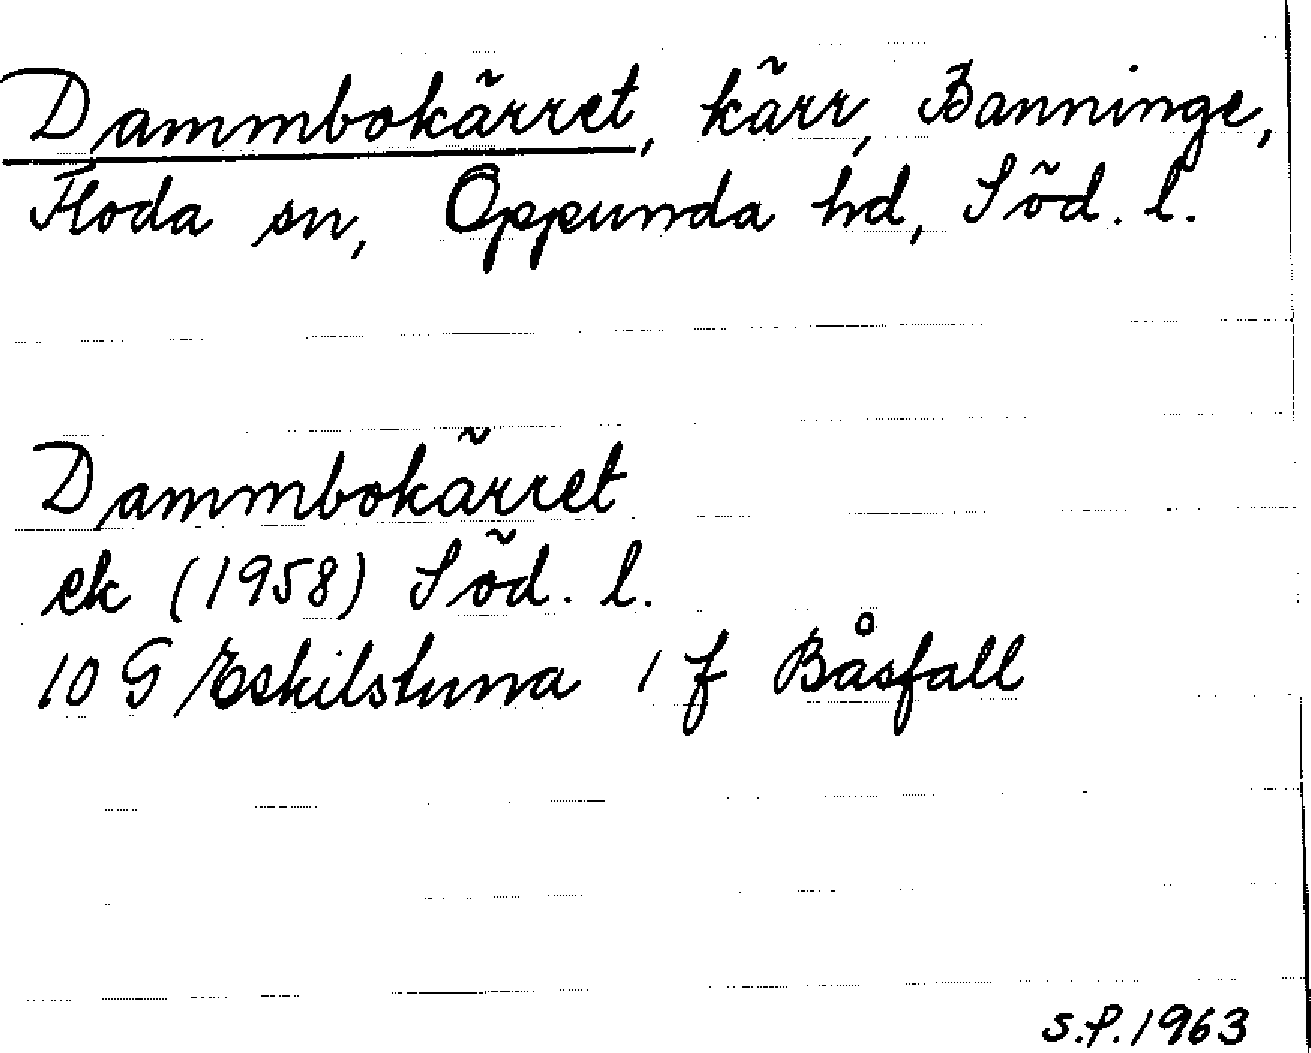 Dammbokärret, kärr, Banninge,
Floda sn, Oppunda hd, Söd. l.
Dammbokärret
ek (1958) Söd. l.
10 G Eskilstuna 1 f Båsfall
S.P. 1963